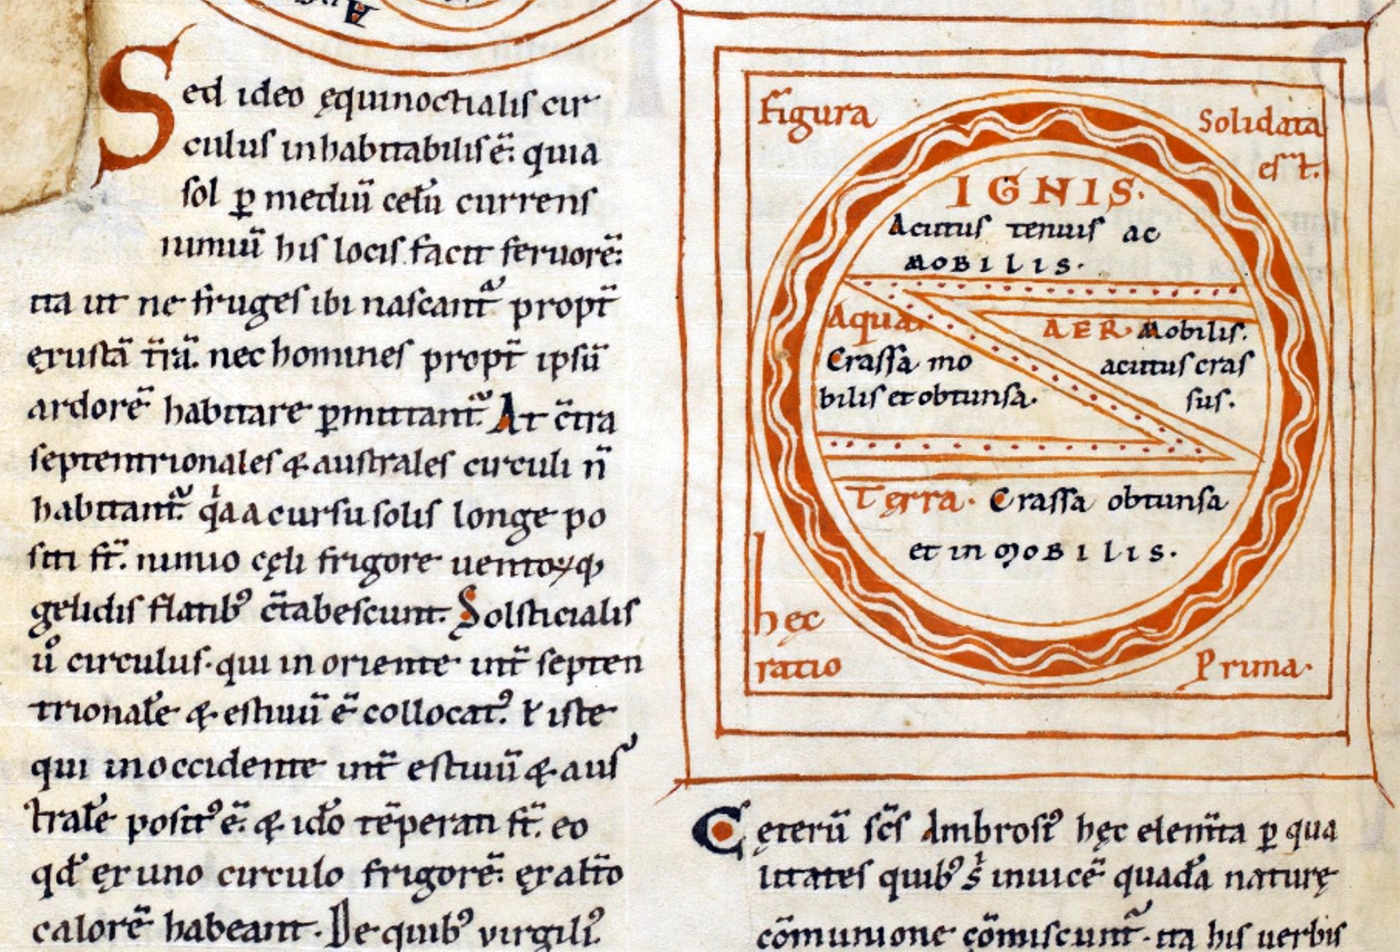 Sed ideo ęquinoctialis cir
culus inhabitabilis ē. quia
sol p̱ mediū celū currens
nimiū his locis facit feruorē.
ita ut ne fruges ibi nascant᷑ propt̄
exustā t̄rā. nec homines propt̄ ipsū
ardorē habitare p̱mittant᷑. At c̄tra
septentrionales & australes circuli n̄
habitant᷑. qͥa a cursu solis longe po
siti st̄. nimio cęli frigore uentoꝝq̱
gelidis flatibꝰ c̄tabescunt. Solsticialis
ū circulus. qui in oriente int̄ septen
trionalē & estiuū ē collocatꝰ. & iste
qui in occidente int̄ estiuū & aus
tralē positꝰ ē. & ido tēperati st̄. eo
qd̄ ex uno circulo frigorē. ex alt̄o
calorē habeant. De quibꝰ virgiliꝰ.
Figura
Solidata
est.
IGNIS.
Acutus tenuis ac
MOBILIS.
Aqua.
Crassa mo
bilis et obtunsa.
AER. Mobilis.
acutus cras
sus.
Tęrra. Crassa obtunsa
et inmOBILIS.
hęc
ratio
Prima.
Ceterū sc̄s Ambrosiꝰ hęc elem̄ta p̱ qua
litates quibꝰ sͥ inuicē quadā naturę
cōmunione cōmiscunt᷑. ita his uerbis